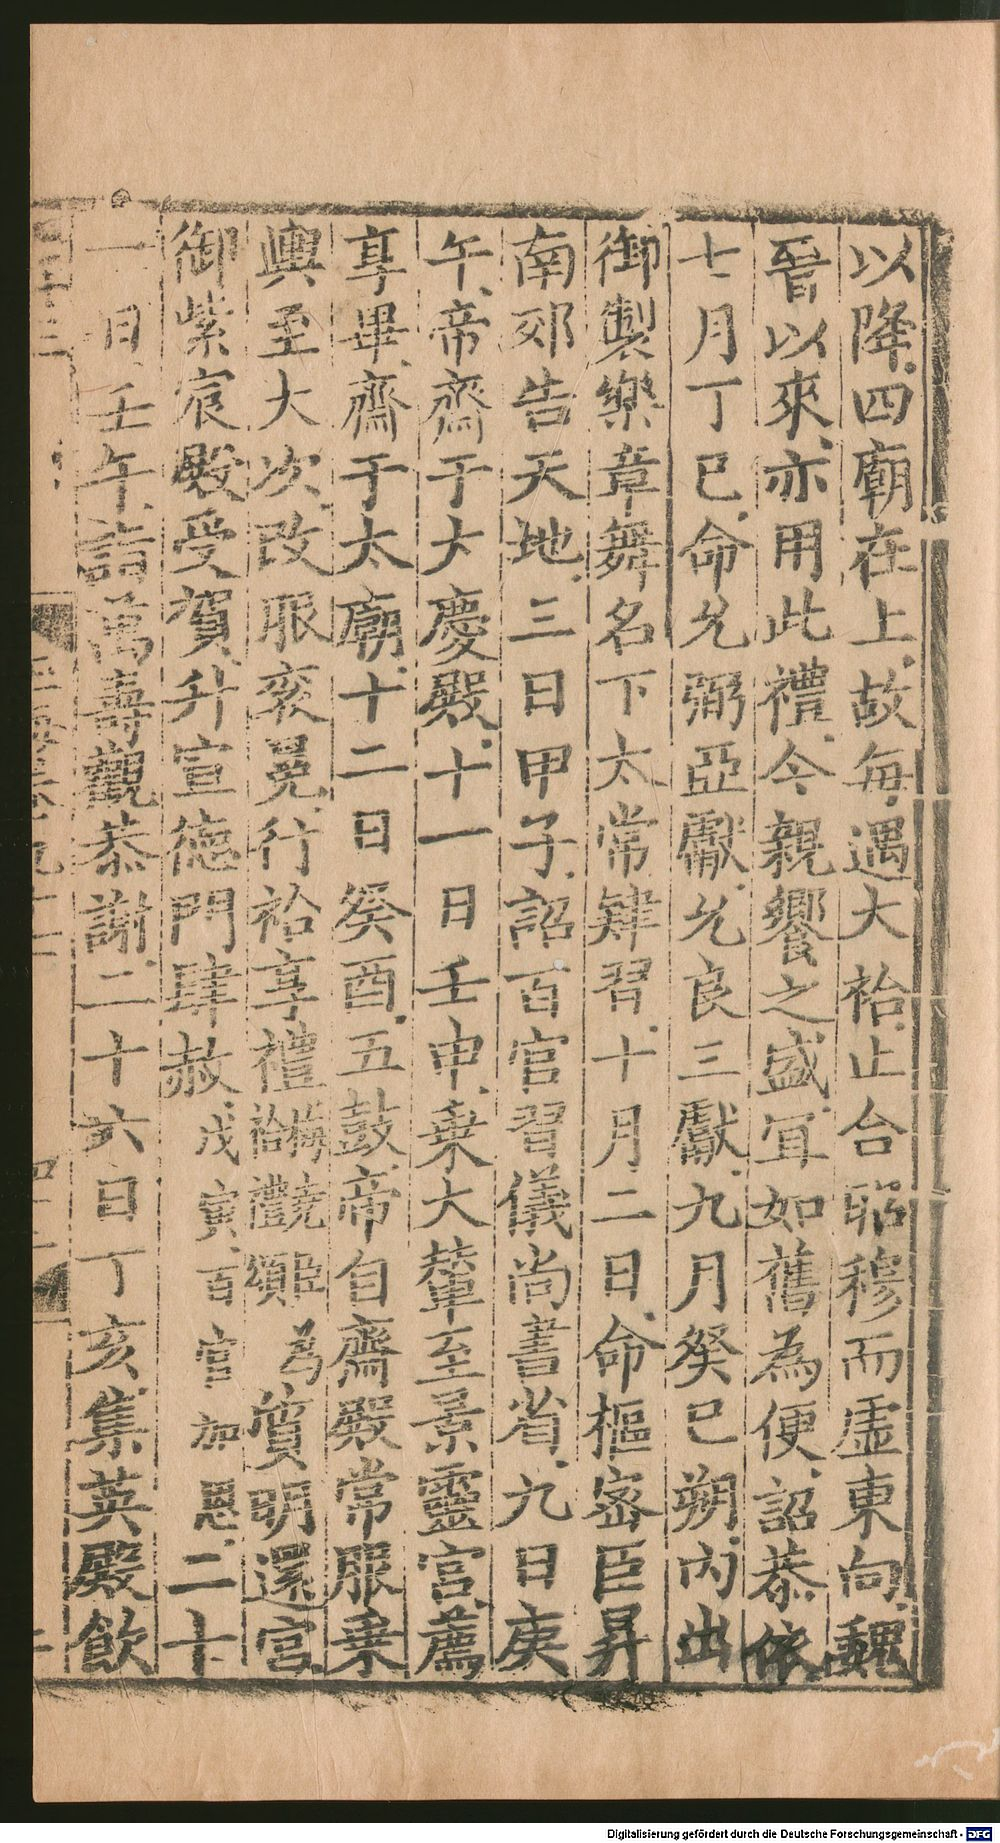 以降四廟在上故每遇大祫止合昭穆而虛東向魏
晉以來亦用此禮今親饗之盛宜如舊為便詔恭依
七月丁巳命允弼亞獻允良三獻九月癸巳朔內出
御製樂章舞名下太常肄習十月二日命樞密臣昇
南郊告天地三日甲子詔百官習儀尚書省九日庚
午帝齋于大慶殿十一日壬申乗大輦至景靈宮薦
享畢齋于太廟十二日癸酉五鼓帝自齋殿常服乗
輿至大次改服袞冕行祫享禮
祫禮頌
為
質明還宮
御紫宸殿受賀升宣德門肆赦戊寅百官加恩二十
一日壬午詣萬壽觀恭謝二十六日丁亥集英殿飲
Digitalisierung gefördert durch die Deutsche Forschungsgemeinschaft - DFG